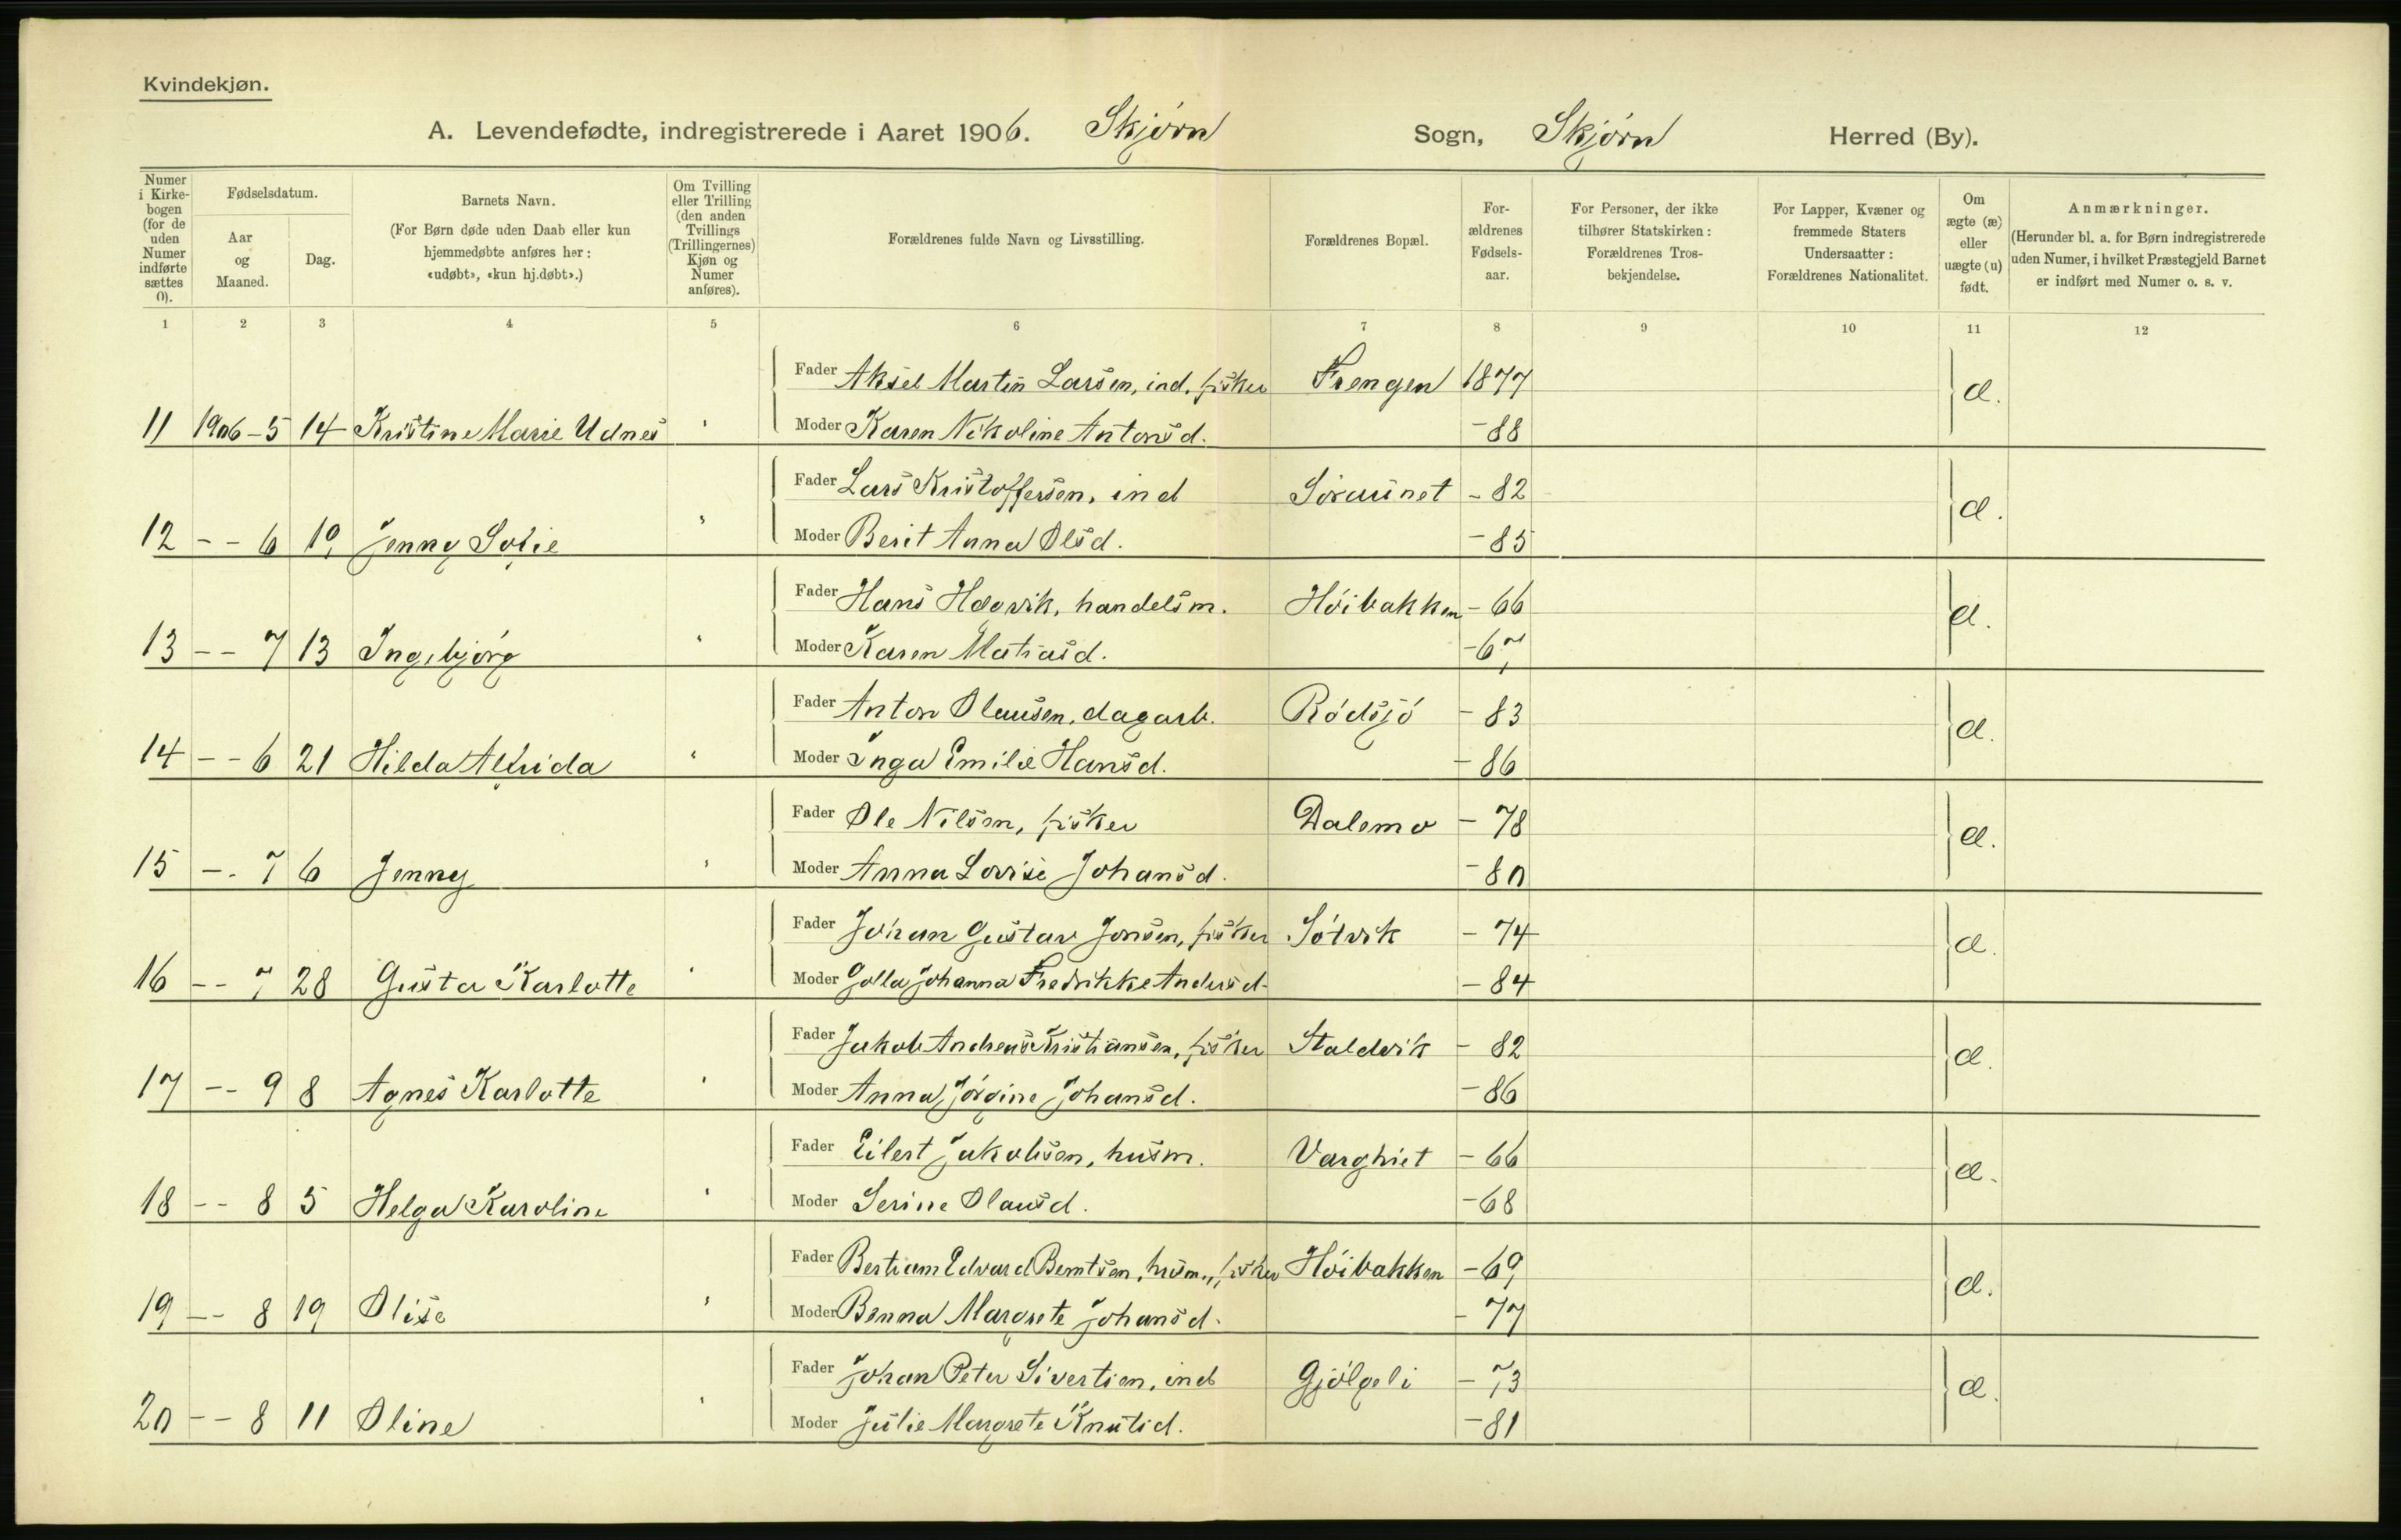 Kvindekjøn.
A. Levendefødte, indregistrerede i Aaret 1906. Skjørn Sogn, Skjørn Herred (By).
Numer i Kirkebogen (for de uden Numer indførte sættes 0).
Fødselsdatum.
Aar og Maaned.
Dag.
Barnets Navn.
(For Børn døde uden Daab eller kun hjemmedøbte anføres her: «udøbt», «kun hj.døbt».)
Om Tvilling eller Trilling (den anden Tvillings (Trillingernes) Kjøn og Numer anføres).
Forældrenes fulde Navn og Livsstilling.
Forældrenes Bopæl.
Forældrenes Fødselsaar.
For Personer, der ikke tilhører Statskirken: Forældrenes Trosbekjendelse.
For Lapper, Kvæner og fremmede Staters Undersaatter: Forældrenes Nationalitet.
Om ægte (æ) eller uægte (u) født.
Anmærkninger.
(Herunder bl. a. for Børn indregistrerede uden Numer, i hvilket Præstegjeld Barnet er indført med Numer o. s. v.
1 2 3 4 5 6 7 8 9 10 11 12
Fader Aksel Martin Larsen, ind, fisker Frengen 1877 æ.
11 1906-5 14 Kristine Marie Udnes " Moder Karen Nikoline Antonsd. -88
Fader Lars Kristoffersen, ind Søraunet -82 æ.
12 -- 6 10 Jenny Sofie " Moder Berit Anna Olsd. -85
Fader Hans Høgvik, handelsm. Høibakken -66 æ.
13 -- 7 13 Ingebjørg " Moder Karen Matiasd. -67
Fader Anton Olausen, dagarb. Rødsjø -83 æ.
14 -- 6 21 Hilda Alfrida " Moder Inga Emilie Hansd. -86
Fader Ole Nilsen, fisker Dalemo -78 æ.
15 -- 7 6 Jenny " Moder Anna Lovise Johansd. -80
Fader Johan Gustav Jonsen, fisker Søtvik -74 æ.
16 -- 7 28 Gusta Karlotte " Moder Golla Johanna Fredrikke Andersd. -84
Fader Jakob Andreas Kristiansen, fisker Staldvik -82 æ.
17 -- 9 8 Agnes Karlotte " Moder Anna Jørgine Johansd. -86
Fader Eilert Jakobsen, husm. Varghiet -66 æ.
18 -- 8 5 Helga Karoline " Moder Serine Olausd. -68
Fader Bertiam Edvard Berntsen, husm., fisker Høibakken -69 æ.
19 -- 8 19 Olise " Moder Benna Margrete Johansd. -77
Fader Johan Peter Sivertsen, ind Gjølgeli -73 æ.
20 -- 8 11 Oline " Moder Julie Margrete Knutsd. -81